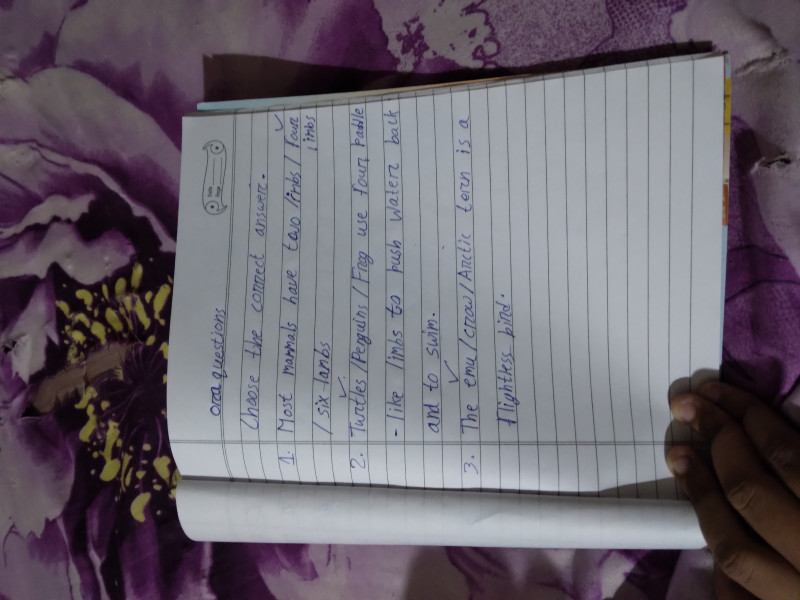 oral questions
Choose the correct answer.
1. Most mammals have two limbs / Four limbs
/ six lambs
2. Turtles / Penguins / Frog use four Paddle
- like limbs to push water back
and to swim.
3. The emu / crow / Arctic tern is a
flightless bird.